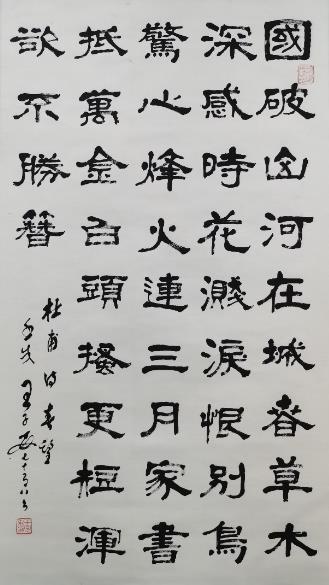 國破山河在城春草木
深感時花濺淚恨別鳥
驚心烽火連三月家書
抵萬金白頭搔更短渾
欲不勝簪
杜甫诗春望
七十